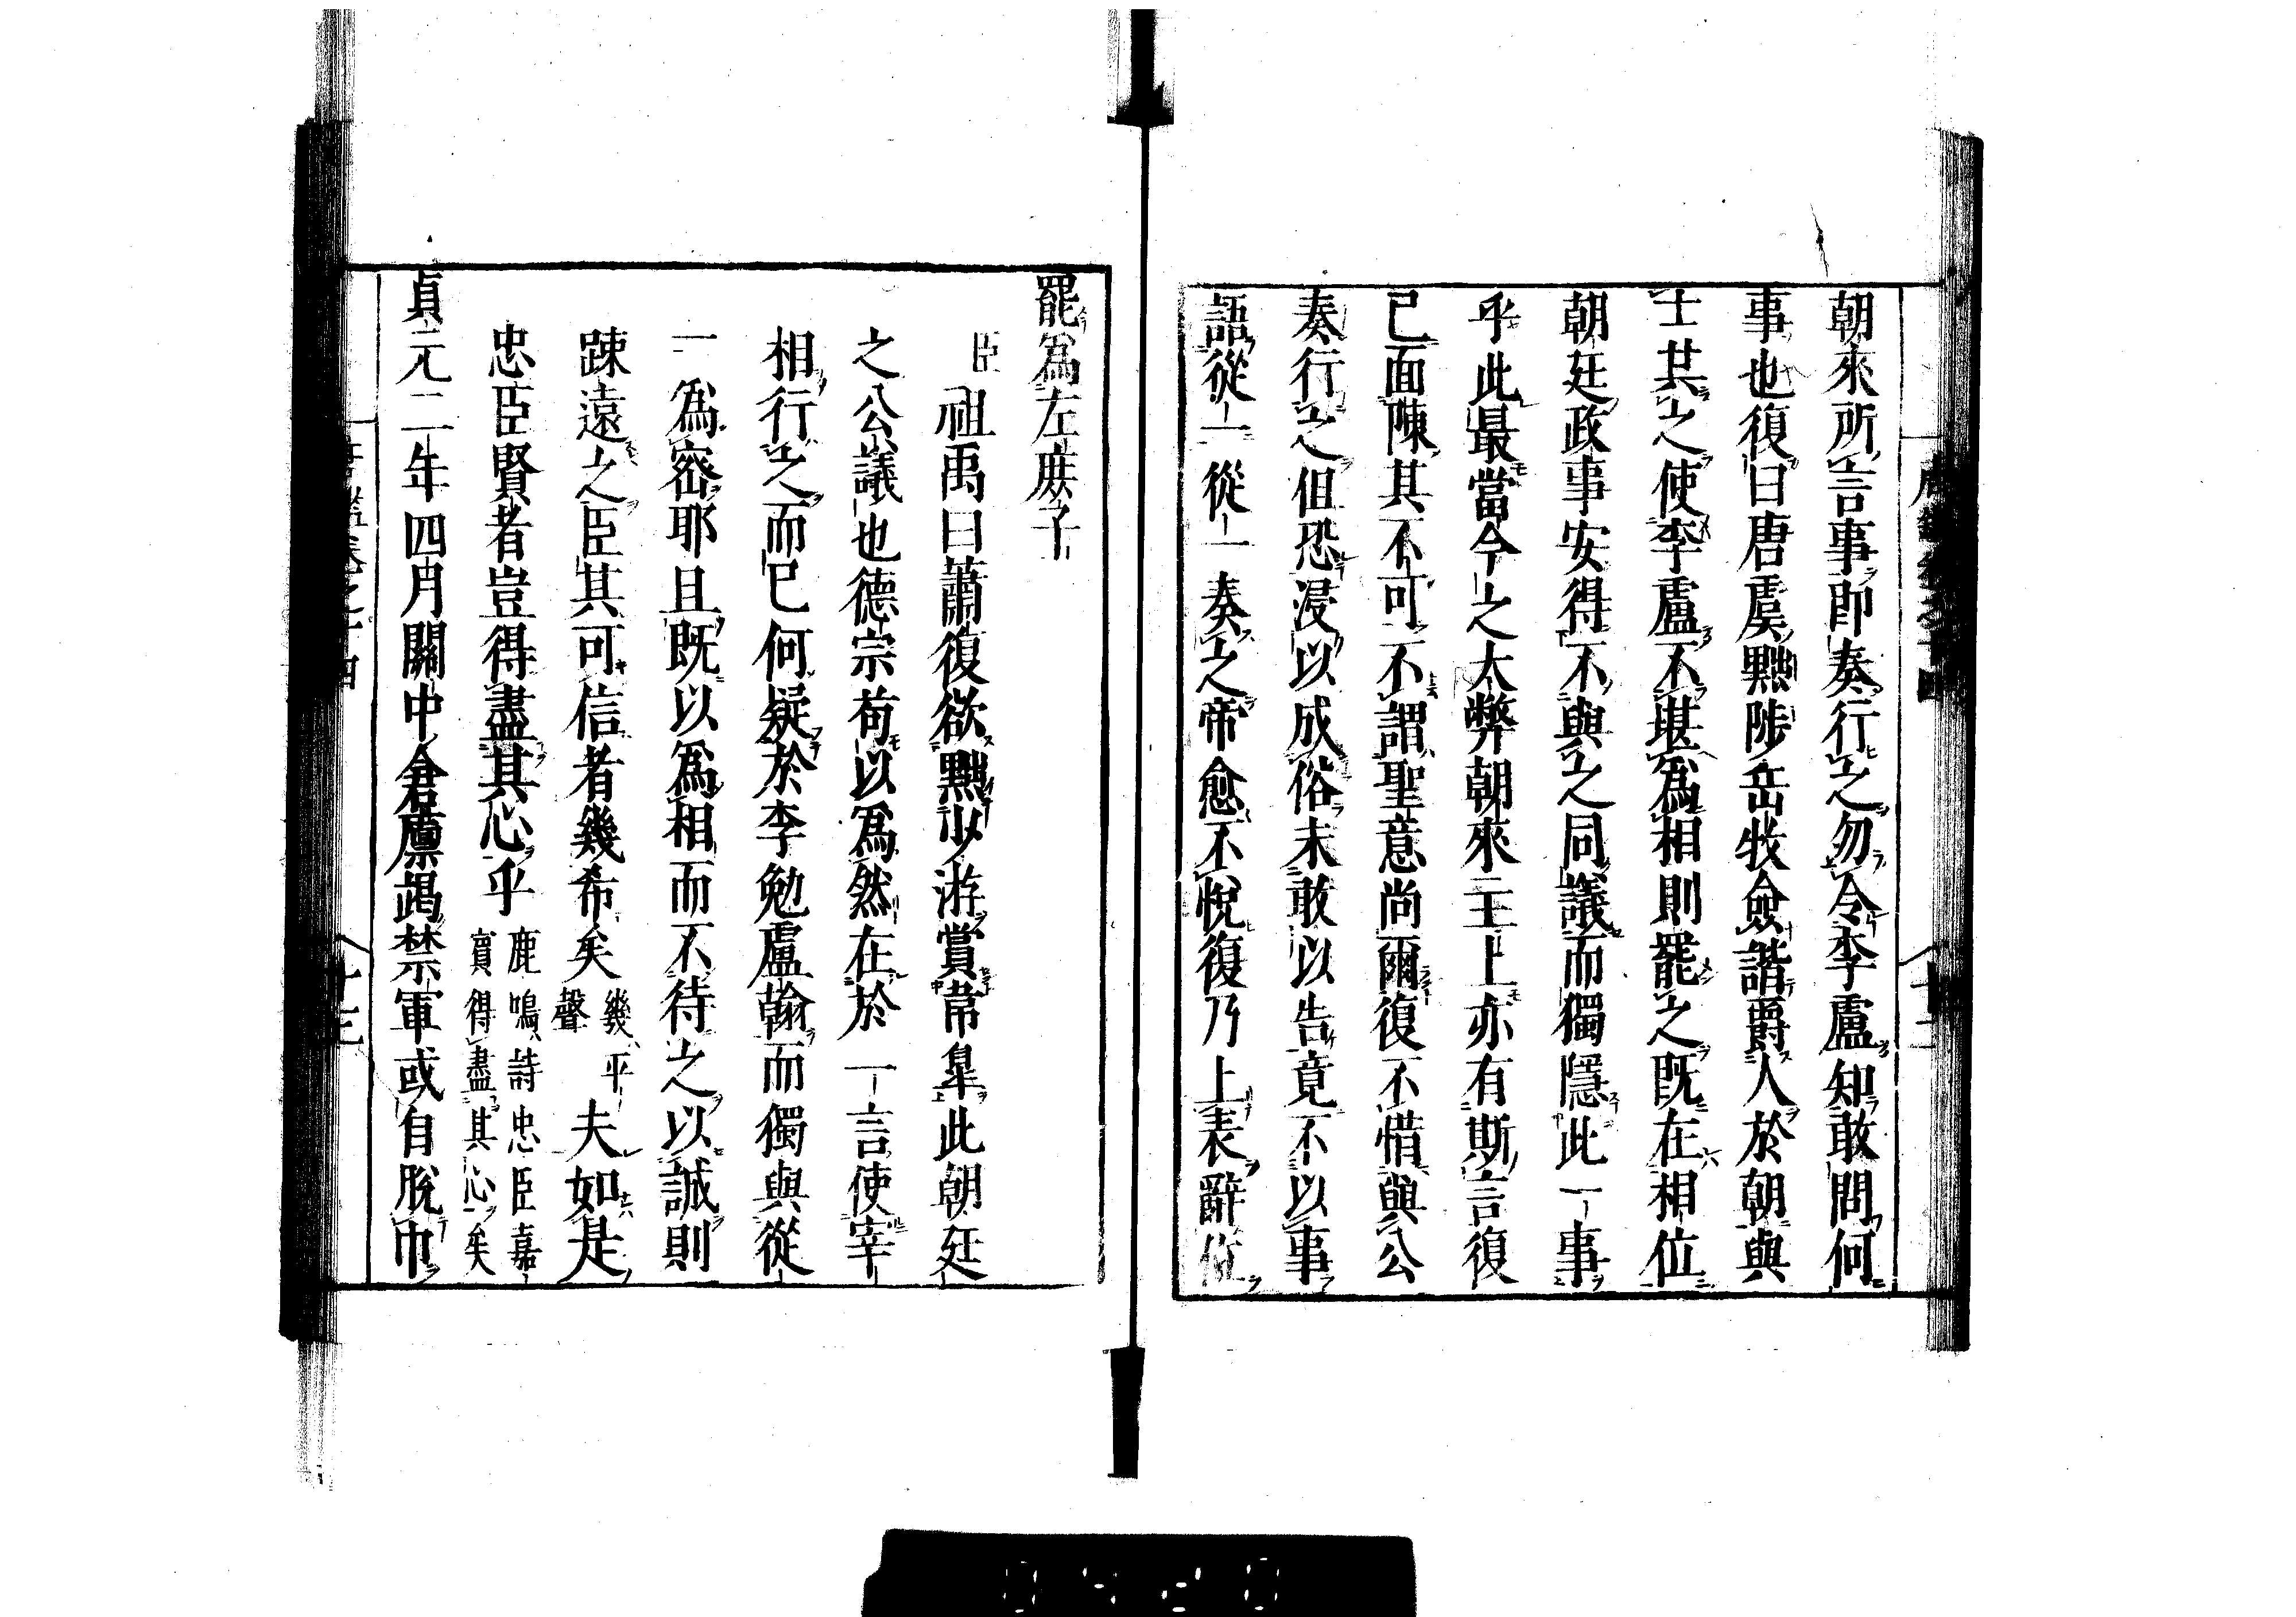 朝來所言事即奏行之勿令李盧知敢問何
事也復曰唐虞黜陟岳牧僉諧爵人於朝與
士共之使李盧不堪爲相則罷之既在相位
朝廷政事安得不與之同議而獨隱此一事
乎此最當今之大弊朝來主上亦有斯言復
已面陳其不可不謂聖意尚爾復不惜與公
奏行之但恐浸以成俗未敢以告竟不以事
語從一從一奏之帝愈不悅復乃上表辭位
罷爲左庶子
臣祖禹曰蕭復欲黜少游賞韋皐此朝廷
之公議也德宗苟以爲然在於一言使宰
相行之而已何疑於李勉盧翰而獨與從
一爲密耶且既以爲相而不待之以誠則
踈遠之臣其可信者幾希矣幾平聲夫如是
忠臣賢者豈得盡其心乎鹿鳴詩忠臣嘉賓得盡其心矣
貞元二年四月關中倉廪竭禁軍或自脫巾